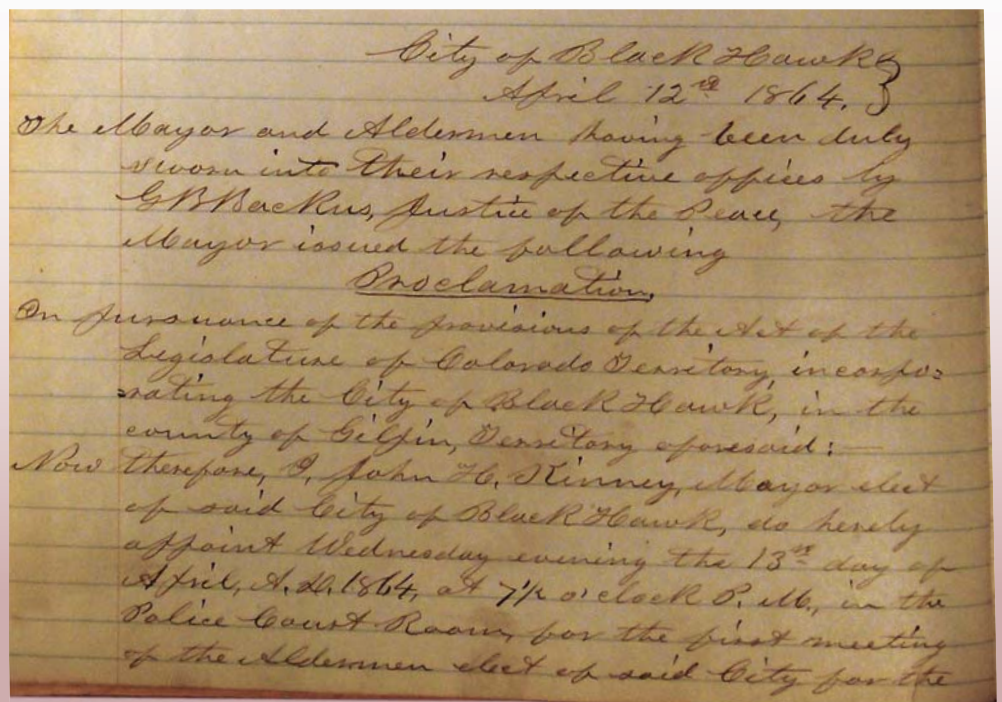 City of Black Hawk }
April 12th 1864. }
The Mayor and Aldermen having been duly
sworn into their respective offices by
G B Backus, Justice of the Peace, the
Mayor issued the following
Proclamation,
In pursuance of the provisions of the Act of the
Legislature of Colorado Territory, incorpo=
=rating the City of Black Hawk, in the
county of Gilpin, Territory aforesaid:—
Now therefore, I, John H. Kinney, Mayor elect
of said City of Black Hawk, do hereby
appoint Wednesday evening the 13th day of
April, A.D. 1864, at 7½ o'clock P.M., in the
Police Court Room, for the first meeting
of the Aldermen elect of said City for the